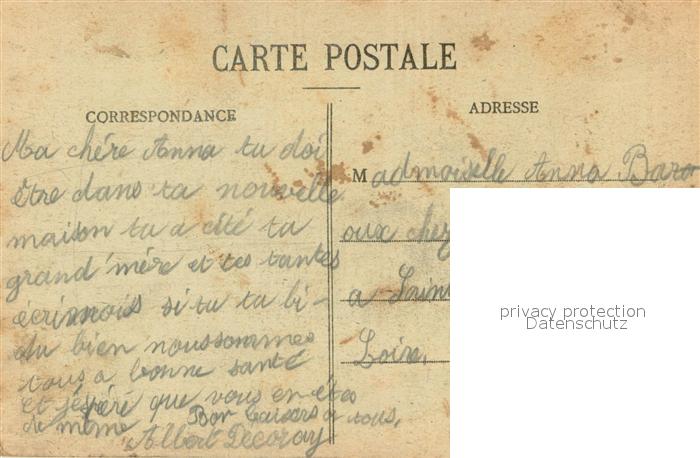 CARTE POSTALE
CORRESPONDANCE
Ma chére Anna tu doi
être dans ta nouvelle
maison tu a cité ta
grand'mére et tes tantes
écrinois si tu ta bi-
du bien noussommes
tous a bonne santé
et j'éspéré que vous en étes
de même Bon baisers a tous,
Albert
ADRESSE
Madmoiselle Anna Baro
oux chez
a
Loire,
privacy protection
Datenschutz